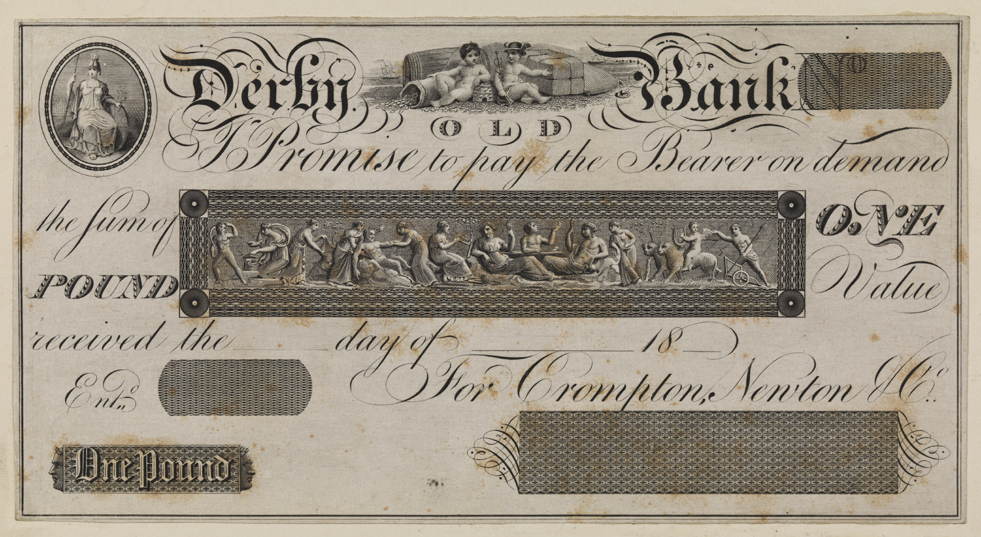 Derby Bank No
OLD
I Promise to pay the Bearer on demand
the Sum of ONE
POUND Value
received the day of 18
Entd. For Crompton, Newton & Co.
One Pound